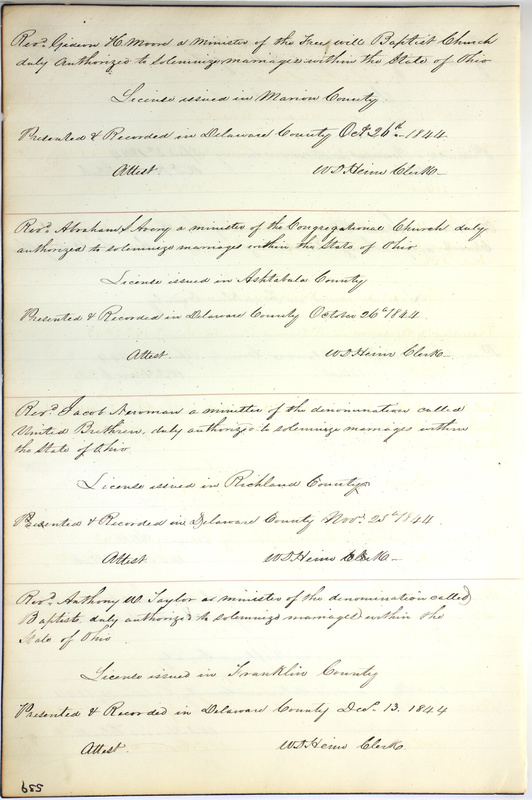 Revd. Gideon H. Moon a Minister of the Free will Baptist Church
duly Authorized to Solemnize marriages within the State of Ohio
License issued in Marion County.
Presented & Recorded in Delaware County Oct 26th 1844.
Attest. W D Heim Clerk
Revd. Abraham S Avory a minister of the Congregational Church duly
authorized to solemnize marriages within the State of Ohio
License issued in Ashtabula County
Presented & Recorded in Delaware County October 26th 1844.
Attest. W D Heim Clerk
Revd. Jacob Newman a minister of the denomination called
United Brethren, duly authorized to solemnize marriages within
the State of Ohio
License issued in Richland County
Presented & Recorded in Delaware County Novr. 25th 1844.
Attest W D Heim Clerk
Revd. Anthony W. Taylor as minister of the denomination called
Baptists, duly authorized to solemnize marriages within the
State of Ohio
License issued in Franklin County
Presented & Recorded in Delaware County Decr. 13. 1844
Attest. W D Heim Clerk